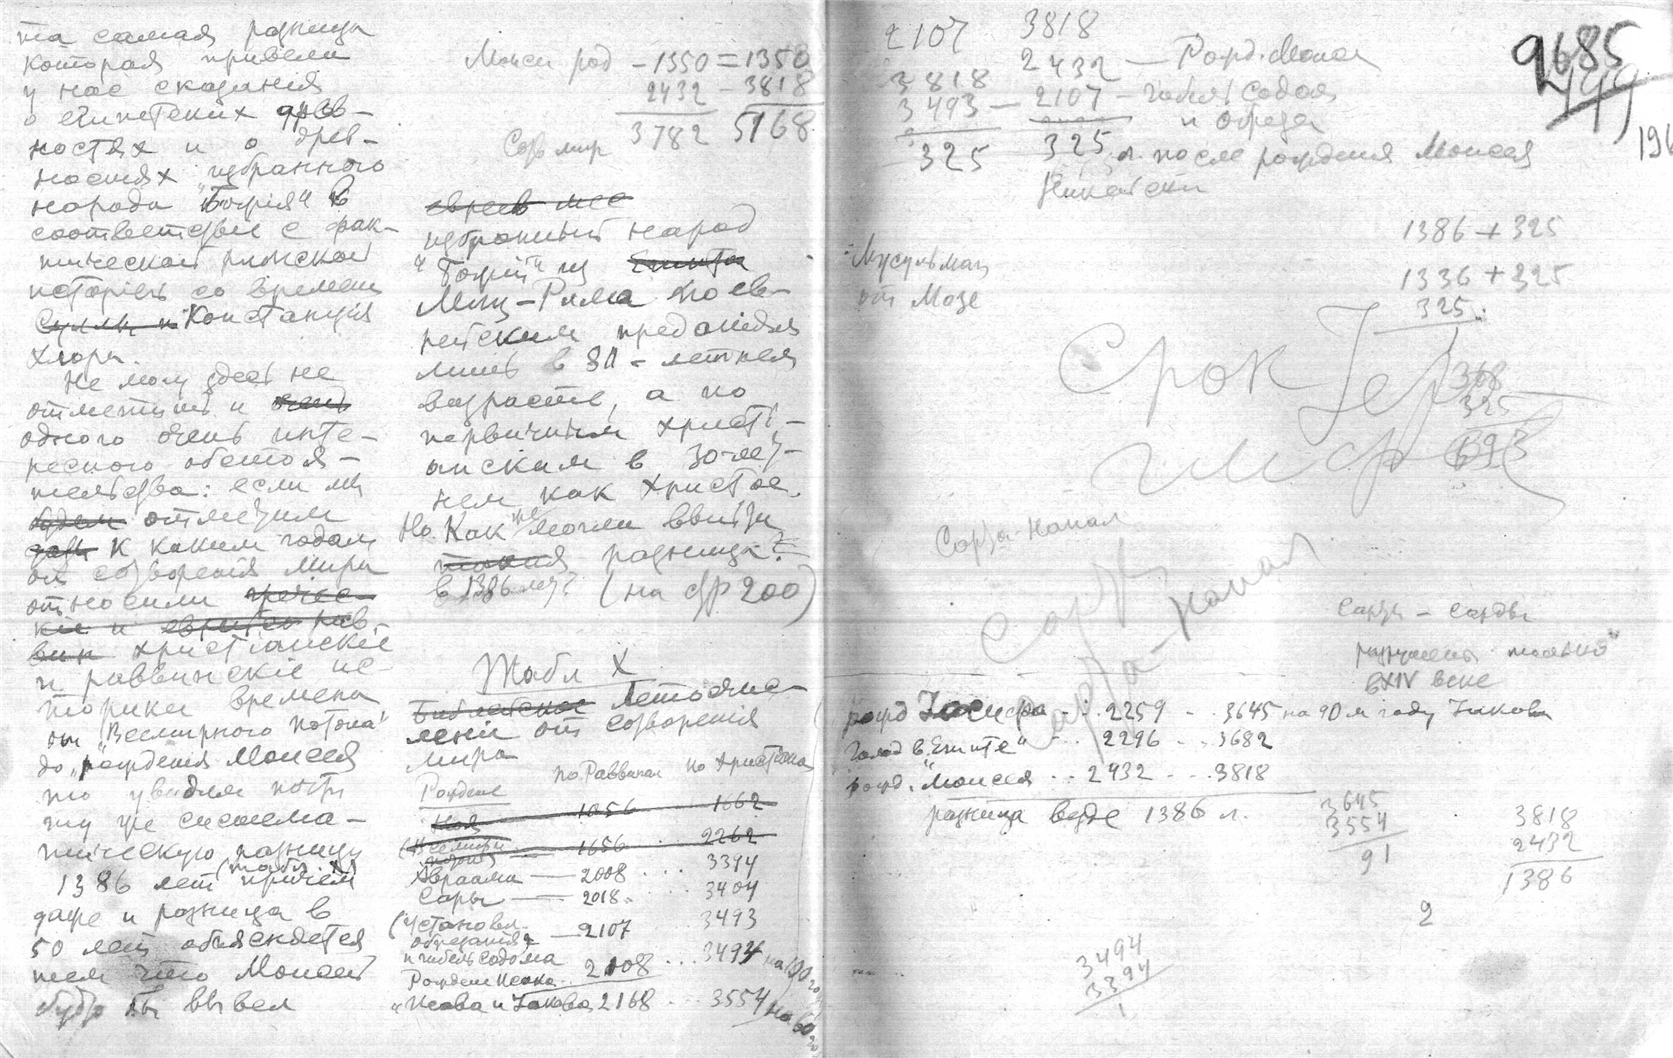 та самая разница
которая привели
у нас сказанія
о египетских древ-
ностях и о древ-
ностях избранного
народа "Богія" в
соответствіи с фак-
тической римской
исторіей со времени
Суллы и Констанція
Хлора.
Не могу здесь не
отметить и очень
одного очень инте-
ресного обстоя-
тельства: если мы
будем отметим
к каким годам
от сотворенія мира
относили гречес-
кіе и еврейско рав-
вин христіанскіе
и раввинскіе ис-
торики времена
от "Всемирного потопа"
до рожденія Моисея
то увидим почти
ту же система-
тическую разницу
1386 лет (табл. X) причем
даже и разница в
50 лет объясняется
тем что Моисей
будто бы вывел
Моисей род - 1350 = 1350
2432 - 3818
3782 5168
Сотв мир
избранный народ
"Богій" из Египта
Миц-Рима по ев-
рейским преданіям
лишь в 80-летнем
возрасте, а по
первичным христі-
анским в 30-лет-
нем как Христос.
Но как же могли выйти
разница?
в 1386 лет? (на стр 200)
Табл X
Библейское Летоисчис-
леніе от сотворенія
мира
по Раввинам по Христіанам
Рожденіе
Ноя 1056 1662
(Всемирн потопа 1656 2262
Авраама — 2008 ... 3394
Сары — 2018 .. 3404
(Установл. обрезанія и гибель Содома — 2107 3493
Рожденіе Исаака 2108 ... 3494 на 100 г
" Исава и Іакова 2168 ... 3554 на 60 г
2107 3818
2432 — Рожд. Моисея
3818
3493 — 2107 — гибел Содом
и обреза
325 325 л. после рожденія Моисея
9685
1386 + 325
1336 + 325
325
Мусульман
от Мозе
Срок
368
325
693
Сарда-напал
Сарда-напал
Сарды
разрушены только
в XIV веке
рожд Іосифа - . 2259 - . 3645 на 90 м году Іакова
Голод в "Египте" ... 2296 .. 3682
рожд. "Моисея ... 2432 ... 3818
разница везде 1386 л.
3645
3554
91
3818
2432
1386
2
3494
3394
1